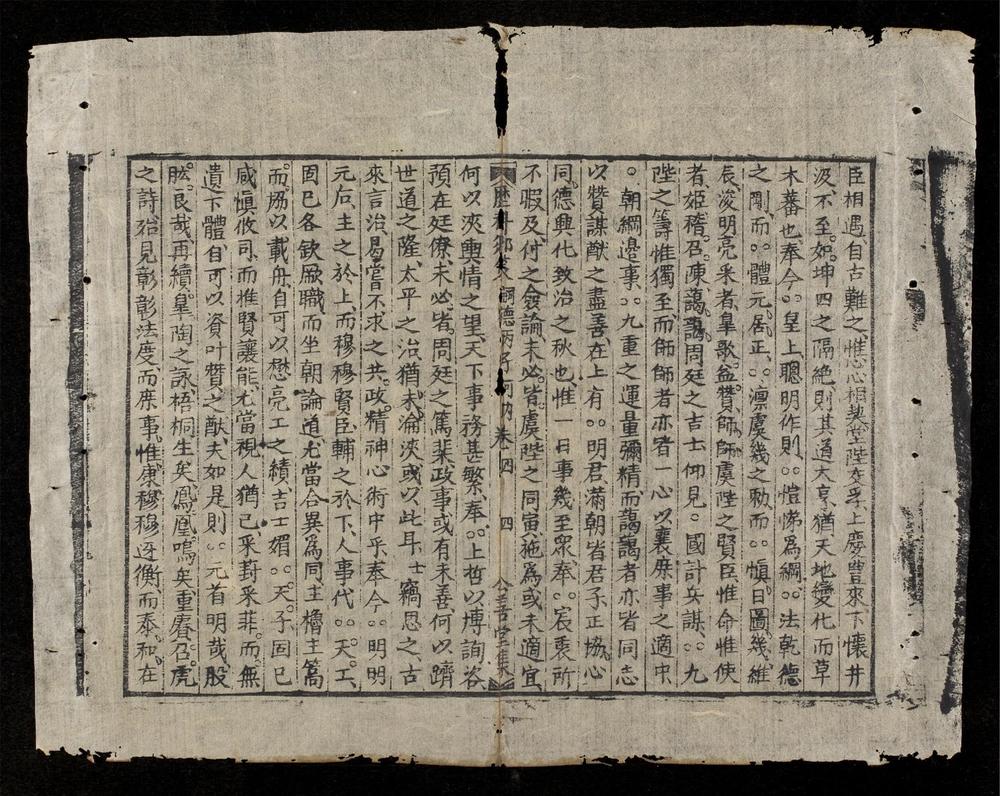 臣相遇自古難之惟心心相契堂陛交孚上慶豊來下懷井
汲不至如坤四之隔絶則其道大亨猶天地變化而草
木蕃也奉今○○皇上聰明作則○○愷悌爲綱○○法乾德
之剛而○○體元居正○○凛虞幾之勅而○○愼日圖幾維
辰浚明亮采者皐歌益贊師師虞陛之賢臣惟命惟使
者姫稽召陳藹藹周廷之吉士仰見○國計兵謀○○九
陛之籌惟獨至而師師者亦皆一心以襄庶事之適中
○朝綱邊事○○九重之運量彌精而藹藹者亦皆同志
以贊謀猷之盡善在上有○○明君滿朝皆君子正協心
同德興化致治之秋也惟一日事幾至衆奉○○宸衷所
不暇及何之僉論未必皆虞陛之同寅施爲或未適宜
卷四 四 公善堂集
何以浹輿情之望天下事務甚繁奉○○上哲以博詢咨
預在廷僚未必皆周廷之篤棐政事或有未善何以躋
世道之隆太平之治猶未淪浹或以此耳士竊思之古
來言治曷嘗不求之共政精神心術中乎奉今○○明明
元右主之於上而穆穆賢臣輔之於下人事代○○天工
固已各欽厥職而坐朝論道尤當合異爲同主櫓主篙
而協以載舟自可以懋亮工之績吉士媚○○天子固已
咸愼攸司而推賢讓能尤當視人猶己采葑采菲而無
遺下體自可以資叶贊之猷夫如是則○○元首明哉股
肱良哉再續皐陶之詠梧桐生矣鳳凰鳴矣重賡召虎
之詩殆見彰彰法度而庶事惟康穆穆迓衡而泰和在